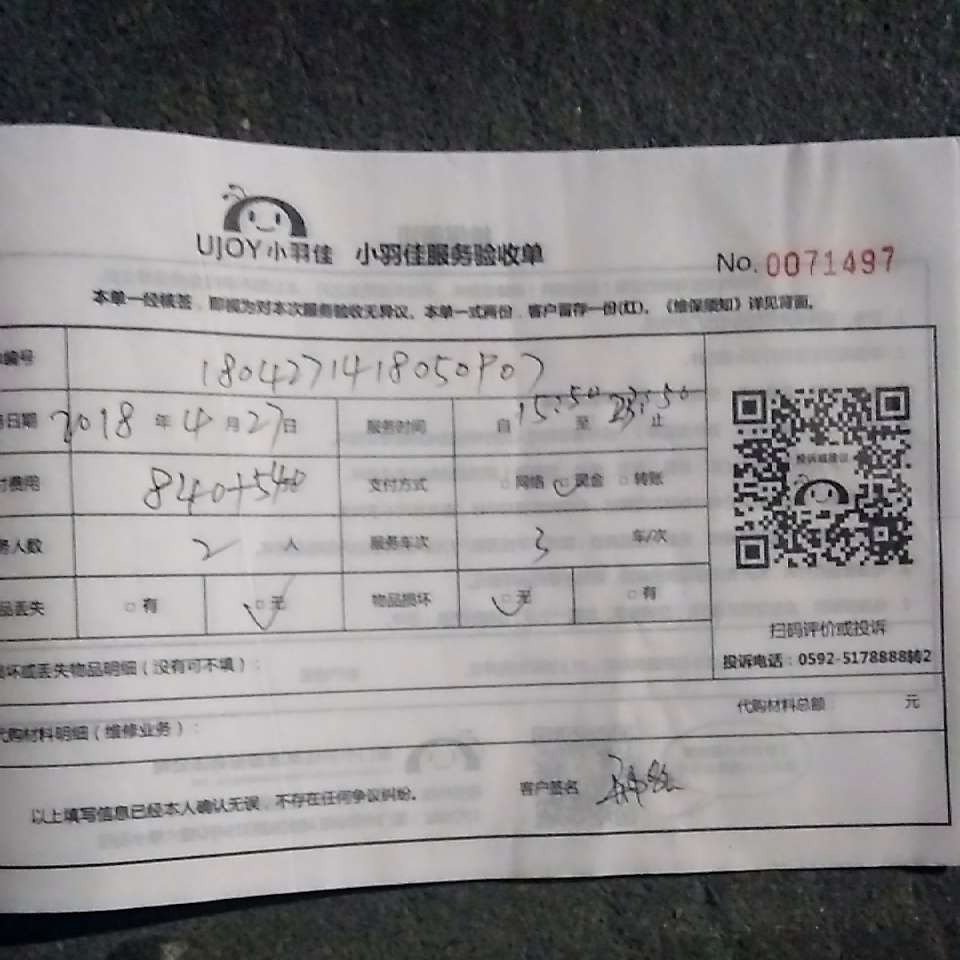 UJOY小羽佳 小羽佳服务验收单 No.0071497
本单一经核签，即视为对本次服务验收无异议。本单一式两份，客户留存一份(红)。《维保须知》详见背面。
编号 1804271418050907
日期 2018 年 4 月 27 日 服务时间 自 15:50 至 23:50 止
费用 840+540 支付方式 □网络 □现金 □转账
投诉或建议
人数 2 人 服务车次 3 车/次
品丢失 □有 □无 物品损坏 □无 □有
扫码评价或投诉
投诉电话：0592-5178888转2
坏或丢失物品明细（没有可不填）：
代购材料明细（维修业务）： 代购材料总额 元
以上填写信息已经本人确认无误，不存在任何争议纠纷。 客户签名